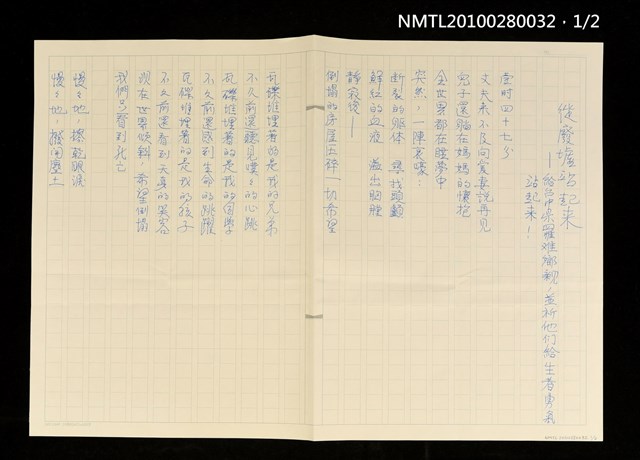 NMTL20100280032・1/2
從廢墟站起来
—給台中眾罹难鄉親，並祈他们給生者勇氣
站起来！
壹时四十七分
丈夫来不及向爱妻說再見
兒子還躺在媽媽的懷抱
全世界都在睡夢中
突然，一陣哀嚎：
断裂的躯体　尋找頭顱
鮮紅的血液　溢出胸膛
靜寂後—
倒塌的房屋玉碎一切希望
瓦礫堆埋著的是我的兄弟
不久前還聽見噗噗的心跳
瓦礫堆埋著的是我的同學
不久前還感到生命的跳躍
瓦礫堆埋著的是我的孩子
不久前還看到天真的笑容
現在世界傾斜　希望倒塌
我們只看到死亡
慢慢地，擦乾眼淚
慢慢地，撥開塵土